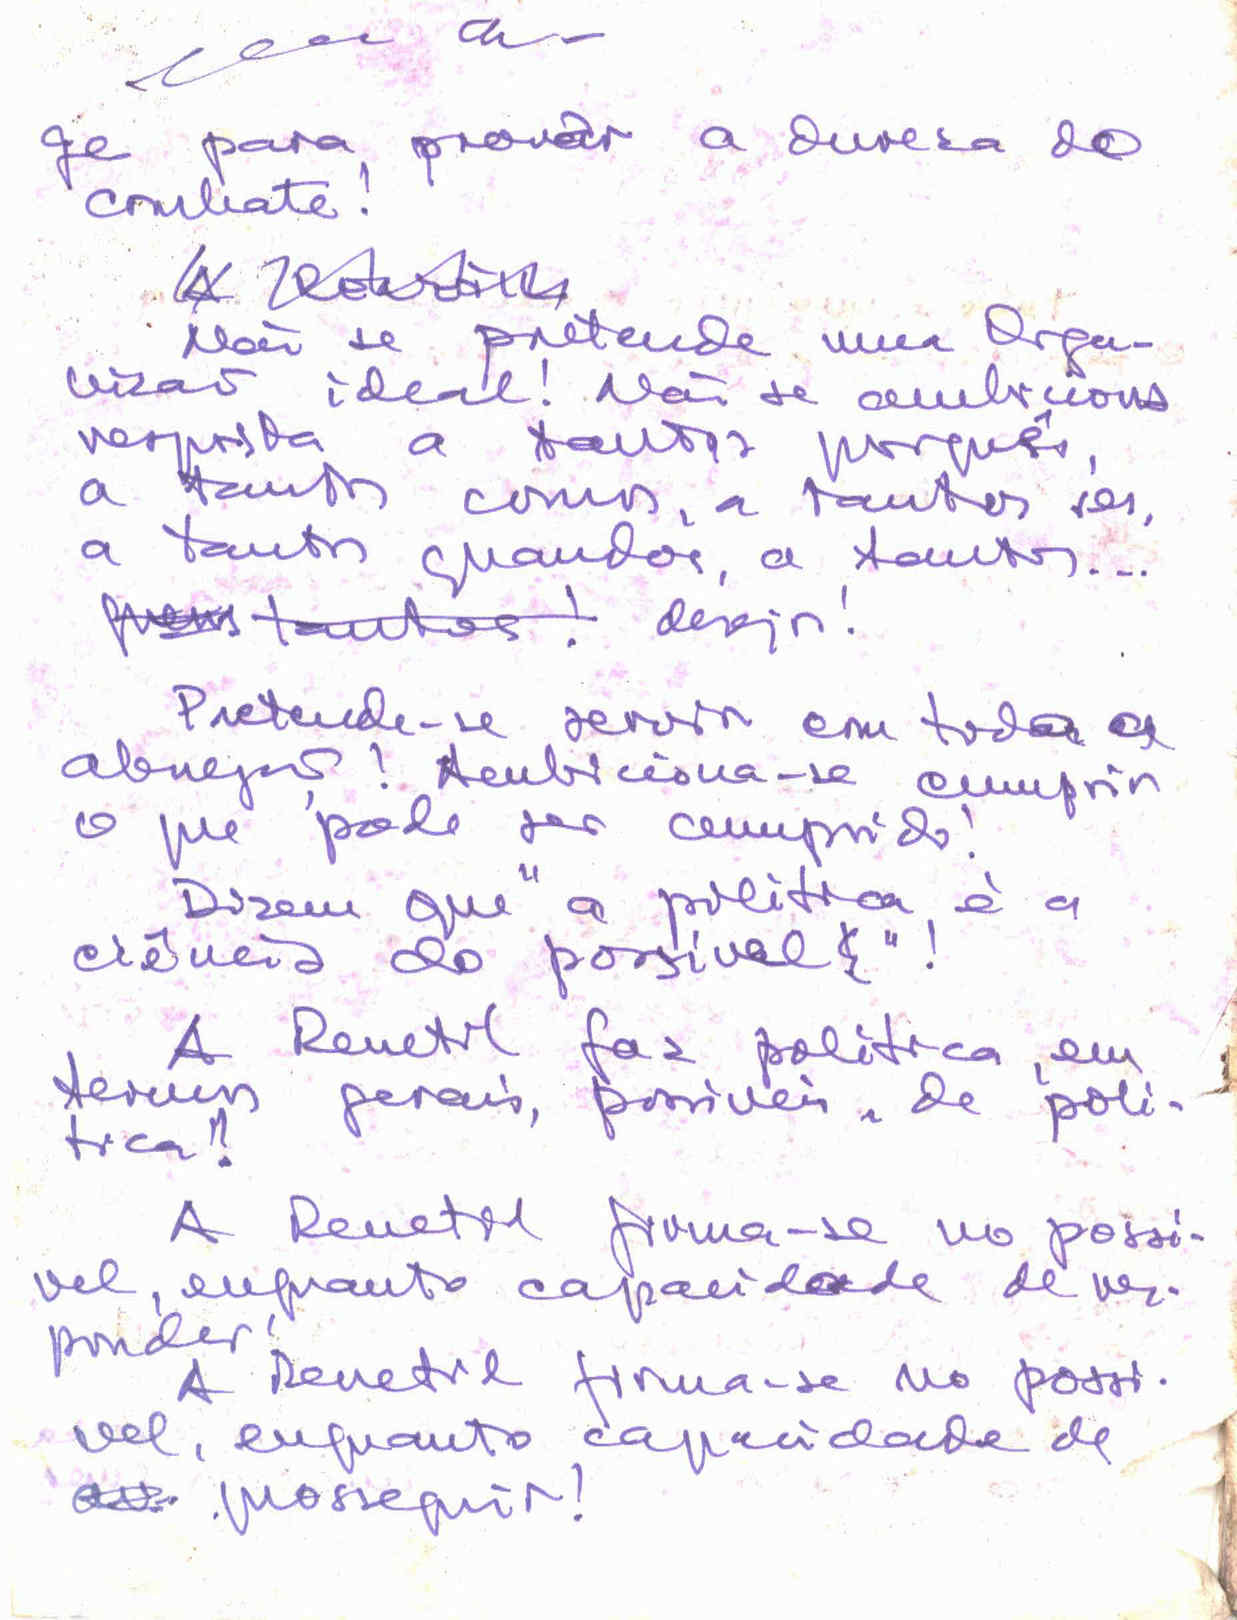 ge para provar a dureza do
combate!
Não se pretende uma Orga-
nizaão ideal! Não se ambiciona
resposta a tantos porquês,
a tantos comos, a tantos ses,
a tantos quandos, a tantos...
tantos! desejos!
Pretende-se servir com toda a
abnegação! Ambiciona-se cumprir
o que pode ser cumprido!
Dizem que "a política é a
ciência do possível"!
A Renetil faz política em
termos gerais, possíveis, de polí-
tica!!
A Renetil firma-se no possí-
vel, enquanto capacidade de res-
ponder!
A Renetil firma-se no possí-
vel, enquanto capacidade de
prosseguir!